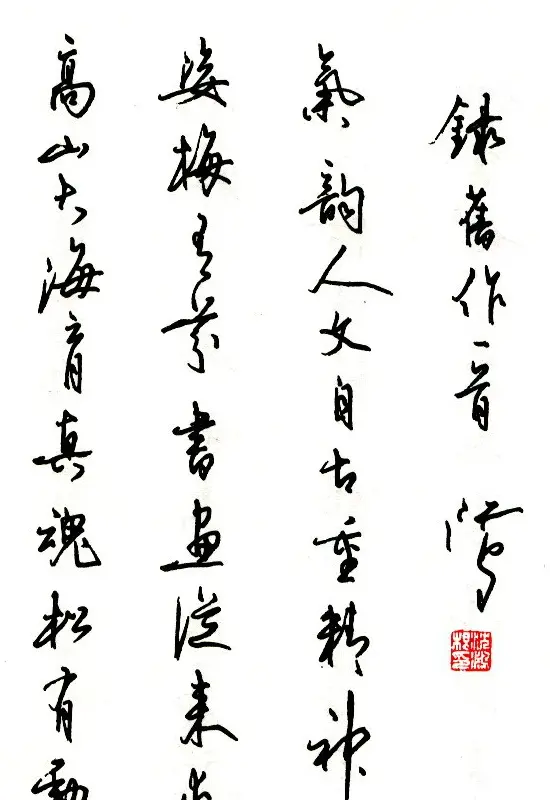 高山大海育真魂松有動
姿梅有芬書畫從來尚
氣韻人文自古重精神
錄舊作一首